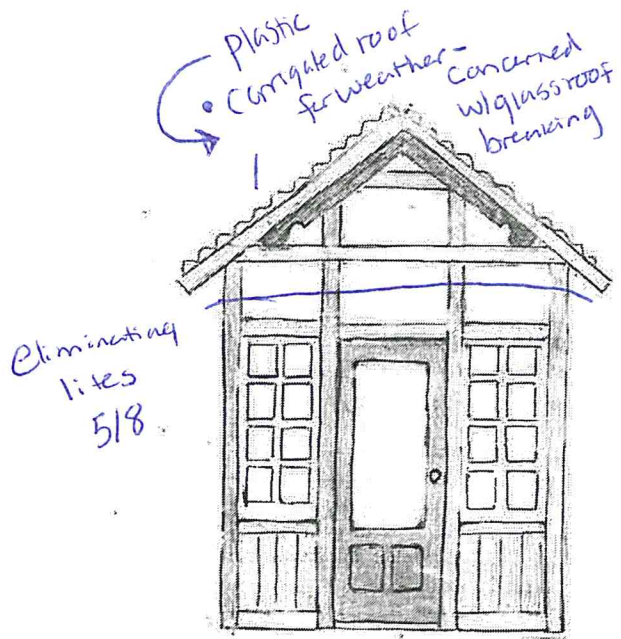 Plastic
• Corrigated roof
for weather -
Concerned
w/glass roof
breaking
Eliminating
lites
5/8